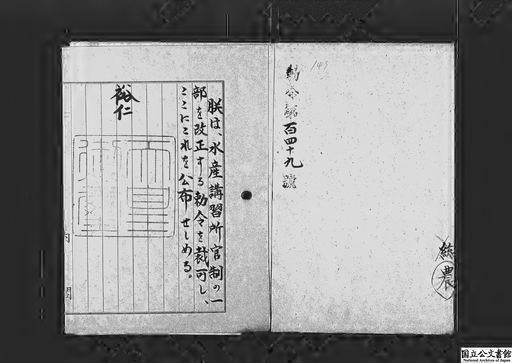 149
勅令第百四十九號
農
朕は、水産講習所官制の一
部を改正する勅令を裁可し、
ここにこれを公布せしめる。
裕仁
天皇御璽
国立公文書館
National Archives of Japan